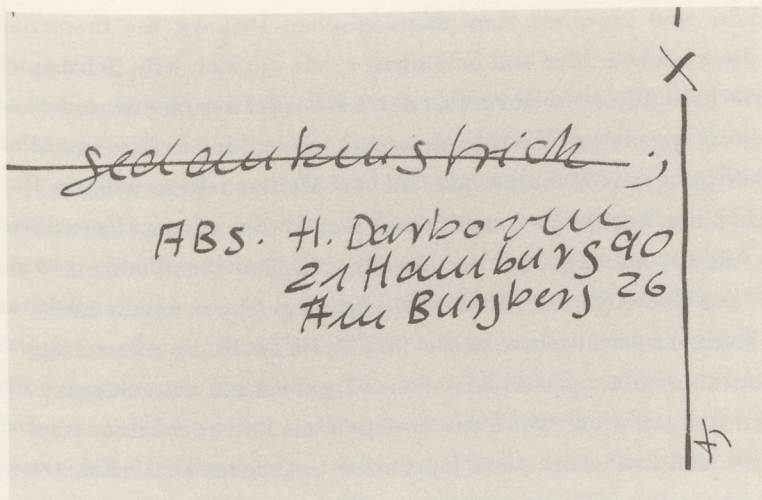 X
gedankenstrich .,
ABS. H. Darboven
21 Hamburg 90
Am Burgberg 26